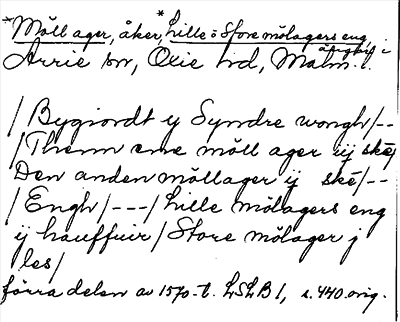 *Möll ager, åker, *Lille o Store mölagers eng
ängar i
Arrie sn, Oxie hd, Malm. l.
/ Bygiordt ij Syndre wongh /--
/ Thenn ene möll ager iij ske/
Den anden möllager ij ske /--
/ Engh /---/ Lille mölagers eng
ij hauffuir / Store mölager j
les /
förra delen av 1570-t. LSLB 1, s. 440 orig.